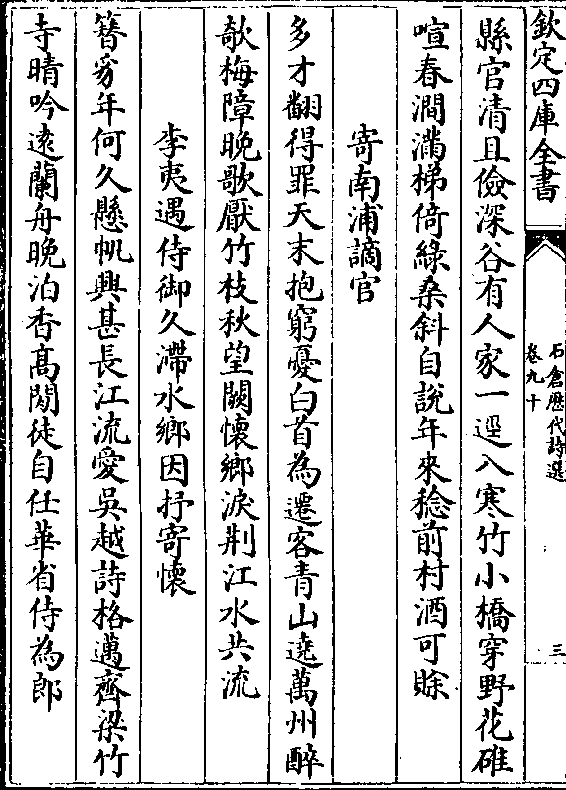 欽定四庫全書
石倉歷代詩選
卷九十
三
縣官清且儉深谷有人家一逕入寒竹小橋穿野花碓
喧春澗滿梯倚綠桑斜自說年來稔前村酒可賖
寄南浦謫官
多才翻得罪天末抱窮憂白首為遷客青山遶萬州醉
欹梅障曉歌厭竹枝秋望闕懷鄉淚荆江水共流
李夷遇侍御久滯水鄉因抒寄懷
簪豸年何久懸帆興甚長江流愛吳越詩格邁齊梁竹
寺晴吟遠蘭舟晚泊香髙閑徒自任華省待為郎